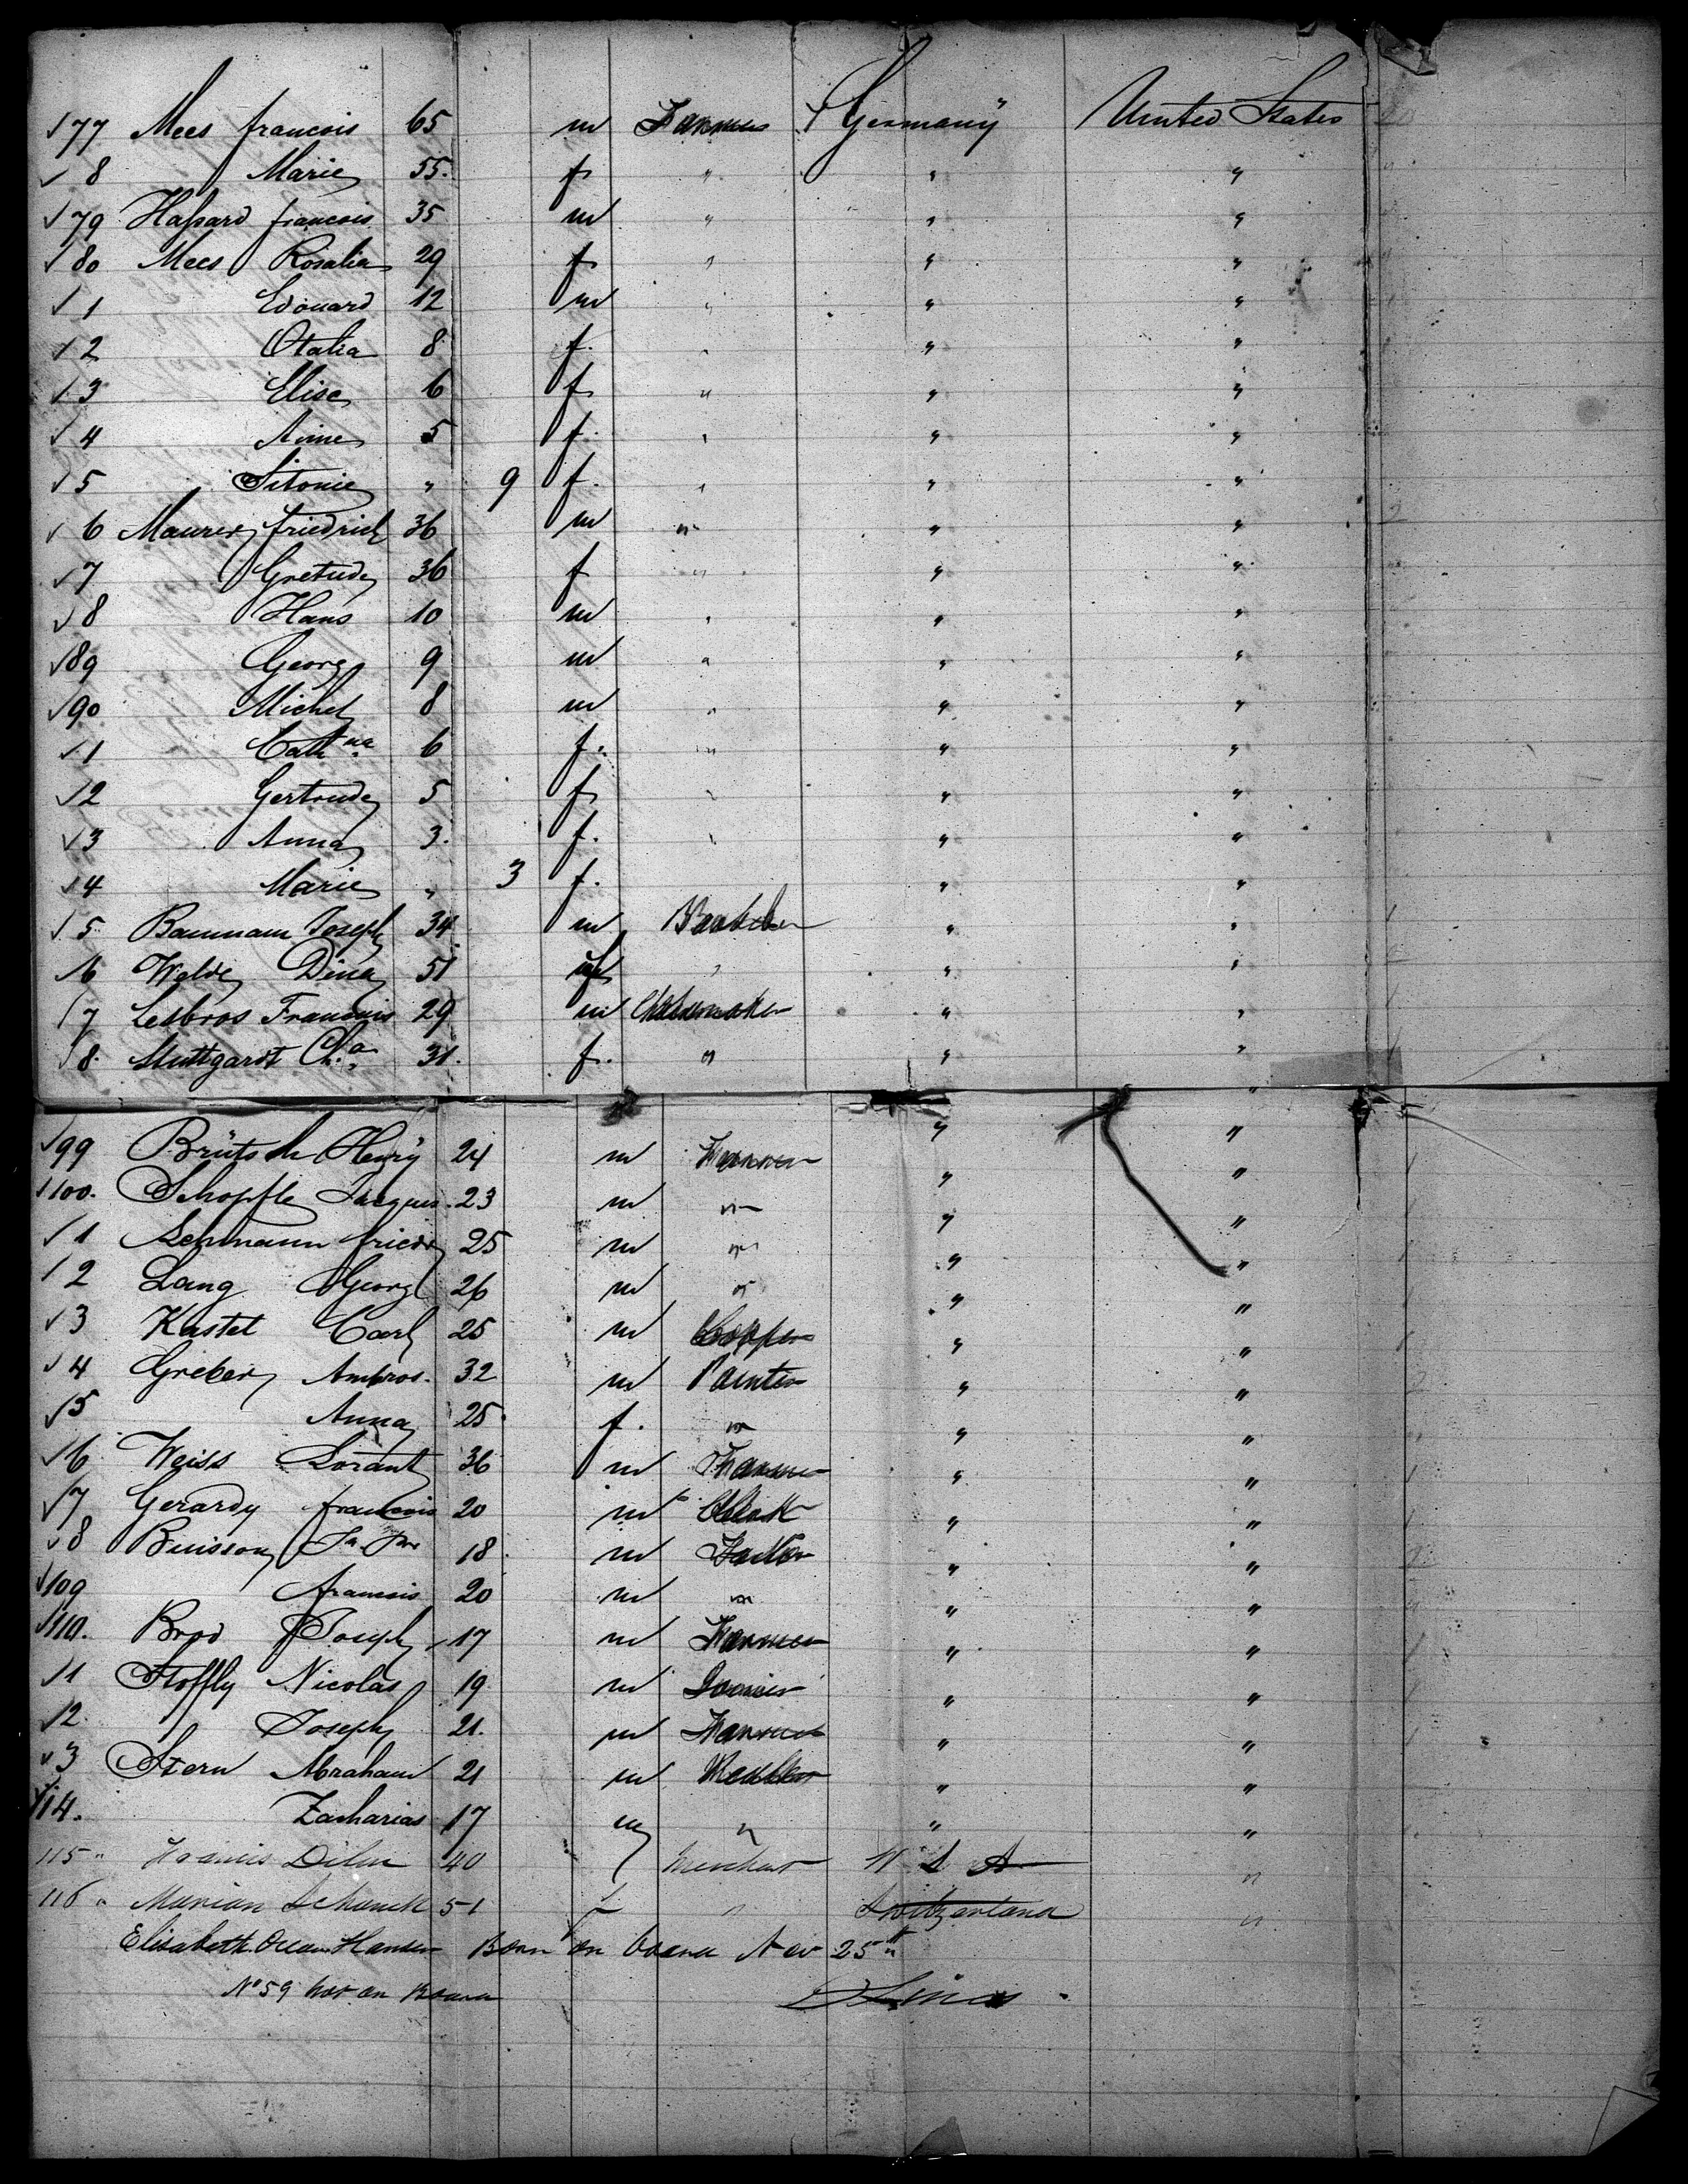 77 Mees francois 65 m Farmer Germany United States
8 Marie 55 f " " "
79 Haſsard francois 35 m " " "
80 Mees Rosalia 29 f " " "
1 Edouard 12 m " " "
2 Otalia 8 f. " " "
3 Elise 6 f " " "
4 Aime 5 f. " " "
5 Sitonie " 9 f. " " "
6 Maurer friedrich 36 m " " "
7 Gretude 36 f " " "
8 Hans 10 m " " "
89 Georg 9 m " " "
90 Michel 8 m " " "
1 Cath na 6 f. " " "
2 Gertrude 5 f " " "
3 Anna 3. f. " " "
4 Marie " 3 f. " "
5 Baumann Joseph 34 m " "
6 Welde Dina 51 f " " "
7 Lesbros Francois 29 m " "
8. Stuttgardt Ch.a 31. f. " " "
99 Brütsch Henry 24 m Farmer " "
100. Schopfle Jacques 23 m " " "
1 Lehmann friedr 25 m " " "
2 Lang Georg 26 m " " "
3 Kastet Carl 25 m " "
4 Greber Ambros. 32 m Painter " "
5 Anna 25 f. " " "
6 Weiss Lorant 36 m Farmer " "
7 Gerardy francois 20 m Clerk " "
8 Buisson 18 m " "
109 francois 20 m " " "
110. Brod Joseph 17 m Farmer " "
11 Stoffly Nicolas 19 m " "
12. Joseph 21. m Farmer " "
3 Stern Abraham 21 m " "
114. Zacharias 17 m " " "
115 " Francis 40 Merchant U S A "
116 " Marian Schanck 51 f " Switzerland "
Elisabeth Ocean Hansen Born on board Nov 25th
No 59 not on Board